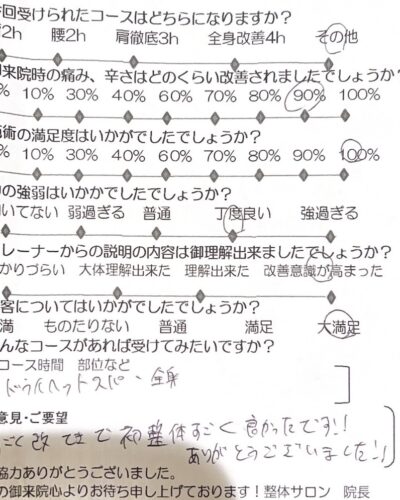 回受けられたコースはどちらになりますか？
2h 腰2h 肩徹底3h 全身改善4h その他
来院時の痛み、辛さはどのくらい改善されましたでしょうか？
% 10% 30% 40% 60% 70% 80% 90% 100%
術の満足度はいかがでしたでしょうか？
% 10% 30% 40% 60% 70% 80% 90% 100%
の強弱はいかかでしたでしょうか？
いてない 弱過ぎる 普通 丁度良い 強過ぎる
レーナーからの説明の内容は御理解出来ましたでしょうか？
かりづらい 大体理解出来た 理解出来た 改善意識が高まった
客についてはいかがでしたでしょうか？
満 ものたりない 普通 満足 大満足
んなコースがあれば受けてみたいですか？
コース時間 部位など
ドライヘットスパ・全身
意見・ご要望
初整体すごく良かったです!!
ありがとうございました!!
協力ありがとうございました。
の御来院心よりお待ち申し上げております！整体サロン 院長